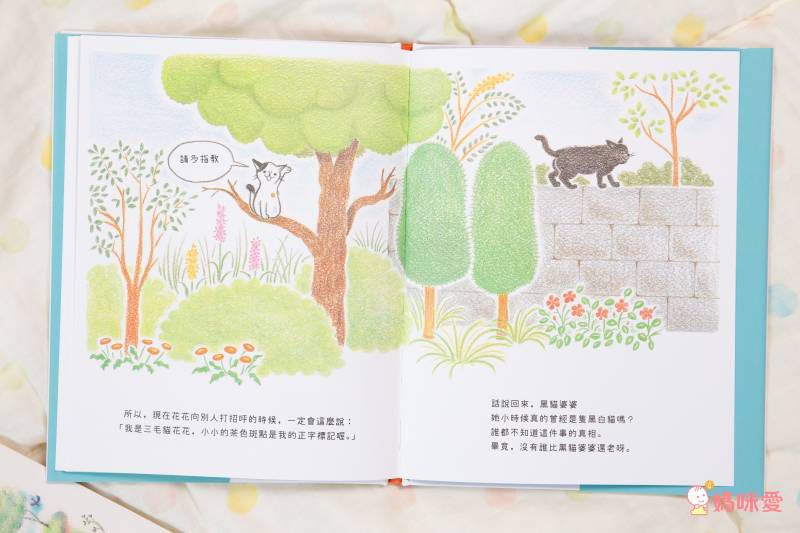 請多指教
所以，現在花花向別人打招呼的時候，一定會這麼說：
「我是三毛貓花花，小小的茶色斑點是我的正字標記喔。」
話說回來，黑貓婆婆
她小時候真的曾經是隻黑白貓嗎？
誰都不知道這件事的真相。
畢竟，沒有誰比黑貓婆婆還老呀。
媽咪愛